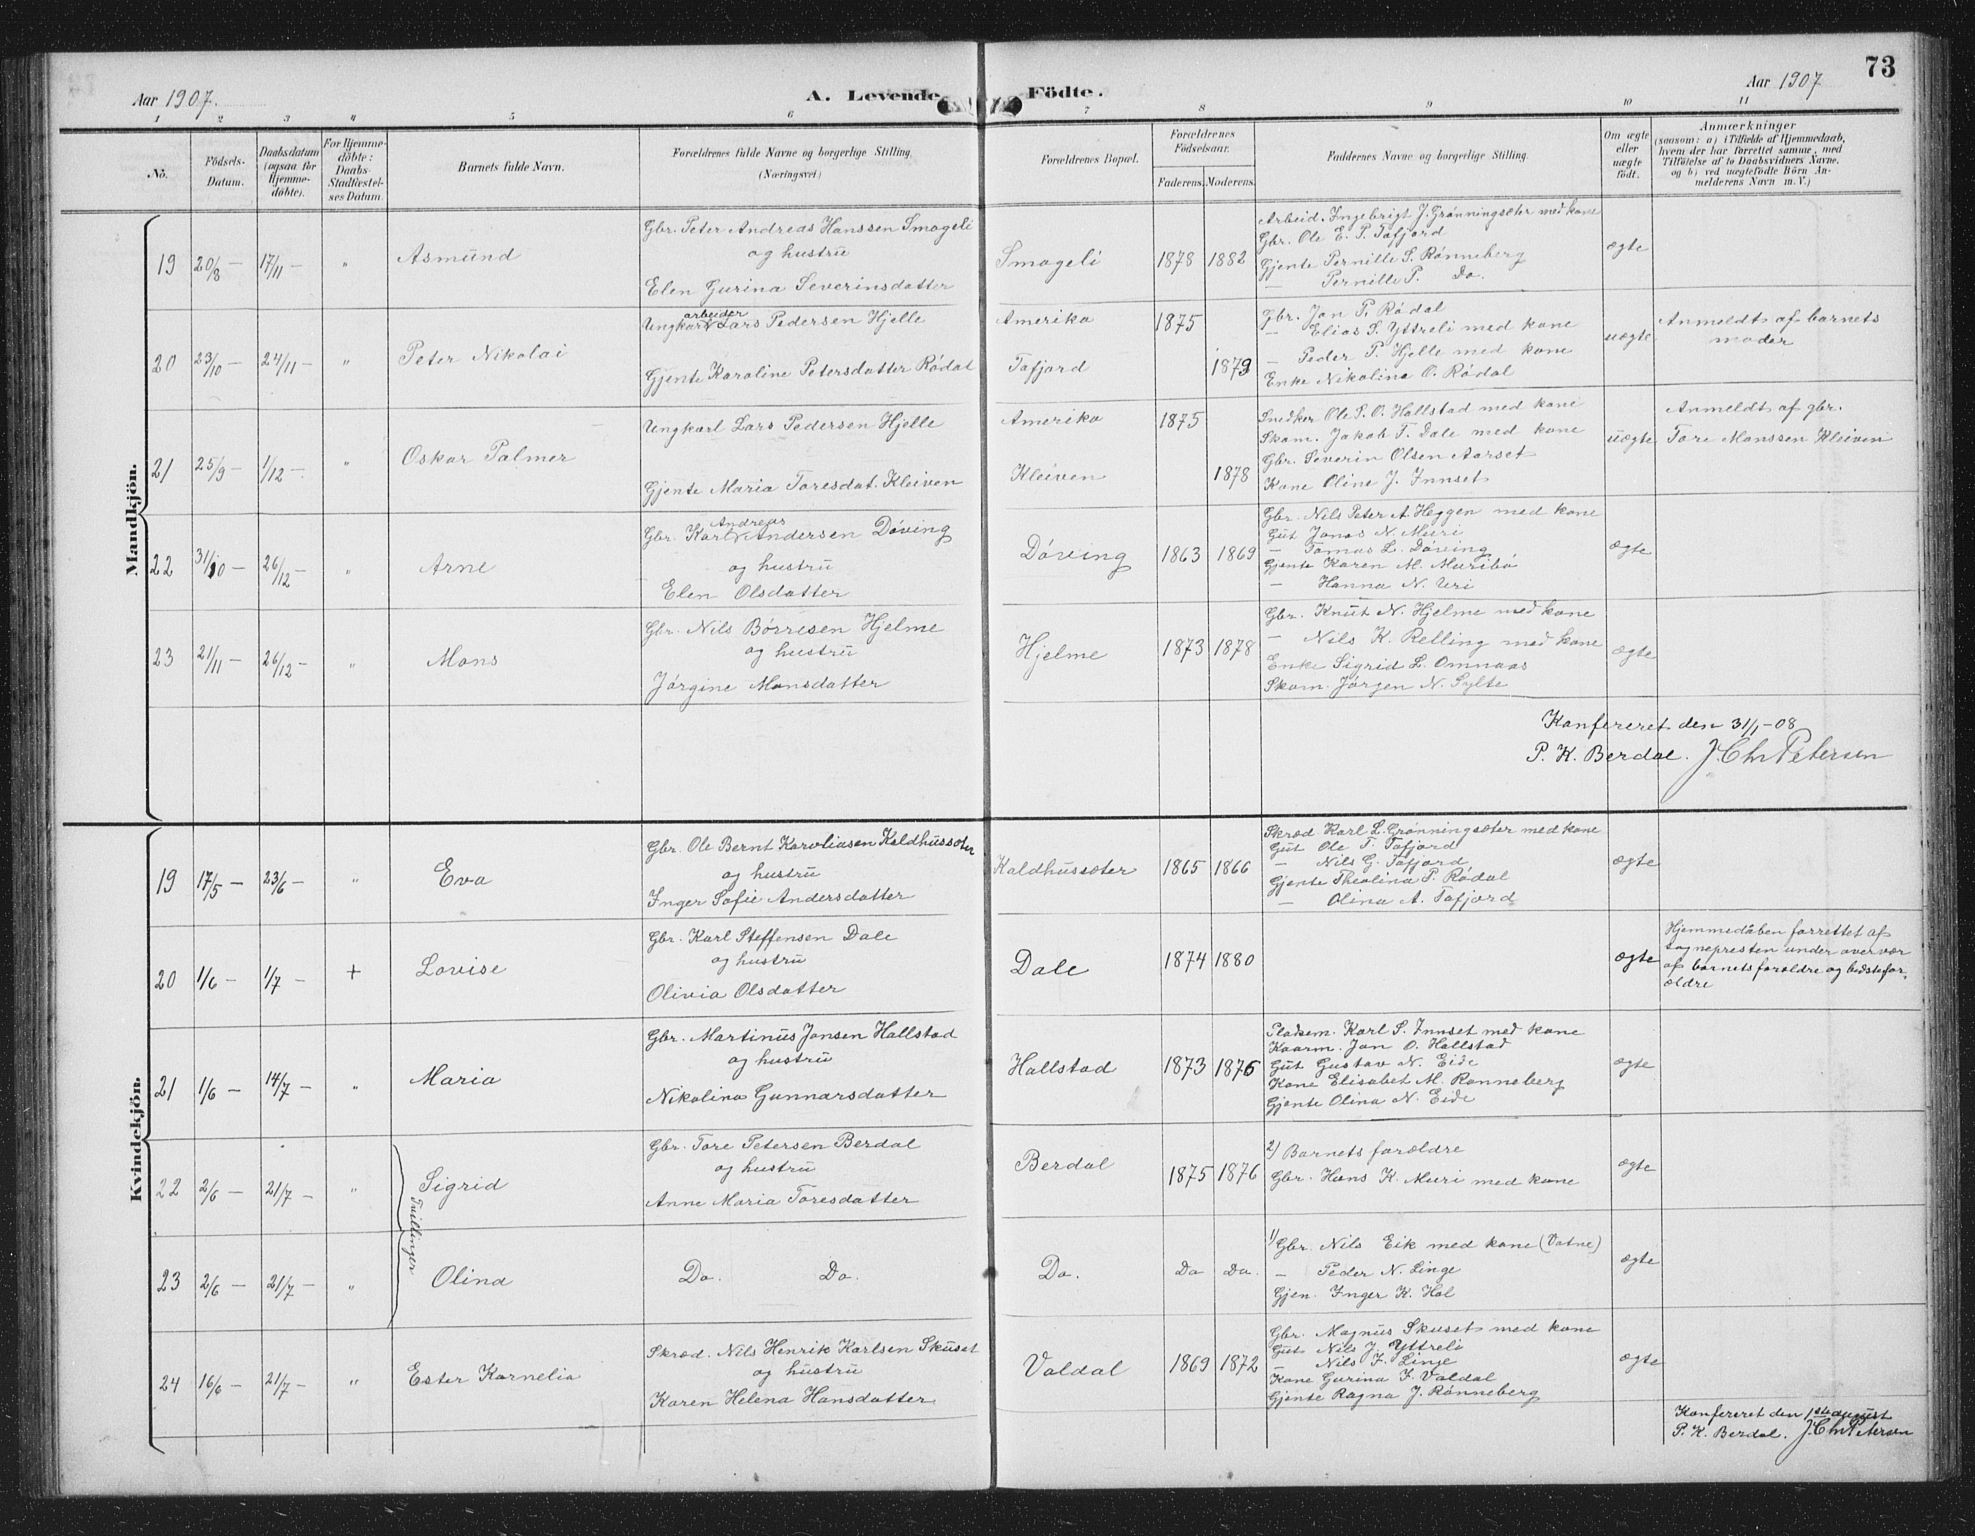 73
Aar 1907.
A. Levende Födte.
Aar 1907
1 2 3 4 5 6 7 8 9 10 11
No.
Födsels-
Datum.
Daabsdatum
(ogsaa for
Hjemme-
döbte).
For Hjemme-
döbte:
Daabs-
Stadfæstel-
ses Datum.
Barnets fulde Navn.
Forældrenes fulde Navne og borgerlige Stilling.
(Næringsvei)
Forældrenes Bopæl.
Forældrenes
Födselsaar.
Faderens. Moderens.
Faddernes Navne og borgerlige Stilling.
Om ægte
eller
uægte
födt.
Anmærkninger
(saasom: a) i Tilfælde af Hjemmedaab,
hvem der har forrettet samme, med
Tilföielse af to Daabsvidners Navne,
og b) ved uægtefödte Börn An-
melderens Navn m. V.)
Mandkjön.
19 20/8 17/11 — " Asmund
Gbr. Peter Andreas Hanssen Smogeli
og hustru
Elen Gurina Severinsdatter
Smogeli 1878 1882
Arbeid. Ingebrigt J. Grønningsæter med kone
Gbr. Ole E. P. Tafjord
Gjente Pernille S. Rønneberg
— Pernille P. Do.
ægte
20 23/10 — 24/11 — " Peter Nikolai
arbeider
Ungkarl Lars Pedersen Hjelle
Gjente Karoline Petersdatter Rødal
Amerika 1875
Tafjord 1879
Gbr. Jon P. Rødal
— Elias S. Yttreli med kone
— Peder P. Hjelle med kone
Enke Nikolina O. Rødal
uægte
Anmeldt af barnets
moder
21 25/9 — 1/12 — " Oskar Palmer
Ungkarl Lars Pedersen Hjelle
Gjente Maria Toresdat. Kleiven
Amerika 1875
Kleiven 1878
Snedker Ole P. O. Hallstad med kone
Skom. Jakob T. Dale med kone
Gbr. Severin Olsen Aarset
Kone Oline J. Innset
uægte
Anmeldt af gbr.
Tore Monssen Kleiven
22 31/10 — 26/12 — " Arne
Andreas
Gbr. Karl Andersen Døving
og hustru
Elen Olsdatter
Døving 1863 1869
Gbr. Nils Peter A. Heggen med kone
Gut Jonas N. Muri
— Tomas L. Døving
Gjente Karen M. Muribø
— Hanna N. Uri
ægte
23 21/11 — 26/12 — " Mons
Gbr. Nils Børresen Hjelme
og hustru
Jørgine Monsdatter
Hjelme 1873 1878
Gbr. Knut N. Hjelme med kone
— Nils K. Relling med kone
Enke Sigrid L. Omnaas
Skom. Jørgen N. Sylte
ægte
Konfereret den 31/1-08
P. K. Berdal. J. Chr Petersen
Kvindekjön.
19 17/5 — 23/6 — " Eva
Gbr. Ole Bernt Karoliusen Kaldhussæter
og hustru
Inger Sofie Andersdatter
Kaldhussæter 1865 1866
Skræd Karl L. Grønningsæter med kone
Gut Ole T. Tafjord
— Nils G. Tafjord
Gjente Theolina P. Rødal
— Olina A. Tafjord
ægte
20 1/6 — 1/7 — + Lovise
Gbr. Karl Steffensen Dale
og hustru
Olivia Olsdatter
Dale 1874 1880
ægte
Hjemmedåben forrettet af
sognepresten under overvær
af barnets forældre og bedstefor-
ældre
21 1/6 — 14/7 — " Maria
Gbr. Martinus Jonsen Hallstad
og hustru
Nikolina Gunnarsdatter
Hallstad 1873 1876
Pladsem. Karl S. Innset med kone
Kaarm. Jon O. Hallstad
Gut Gustav N. Eide
Kone Elisabet M. Rønneberg
Gjente Olina N. Eide
ægte
22 2/6 — 21/7 — " Sigrid
Gbr. Tore Petersen Berdal
og hustru
Anne Maria Toresdatter
Berdal 1875 1876
2) Barnets forældre
Gbr. Hans K. Muri med kone
ægte
Tvillinger
23 2/6 — 21/7 — " Olina
Do. Do.
Do. Do Do.
1) Gbr. Nils Eik med kone (Vatne)
— Peder N. Linge
Gjen. Inger K. Hol
ægte
24 16/6 — 21/7 — " Ester Kornelia
Skræd. Nils Henrik Karlsen Skuset
og hustru
Karen Helena Hansdatter
Valdal 1869 1872
Gbr. Magnus Skuset med kone
Gut Nils J. Yttreli
— Nils I. Linje
Kone Gurina I. Valdal
Gjente Ragna J. Rønneberg
ægte
Konfereret den 1ste august
P. K. Berdal. J. Chr Petersen